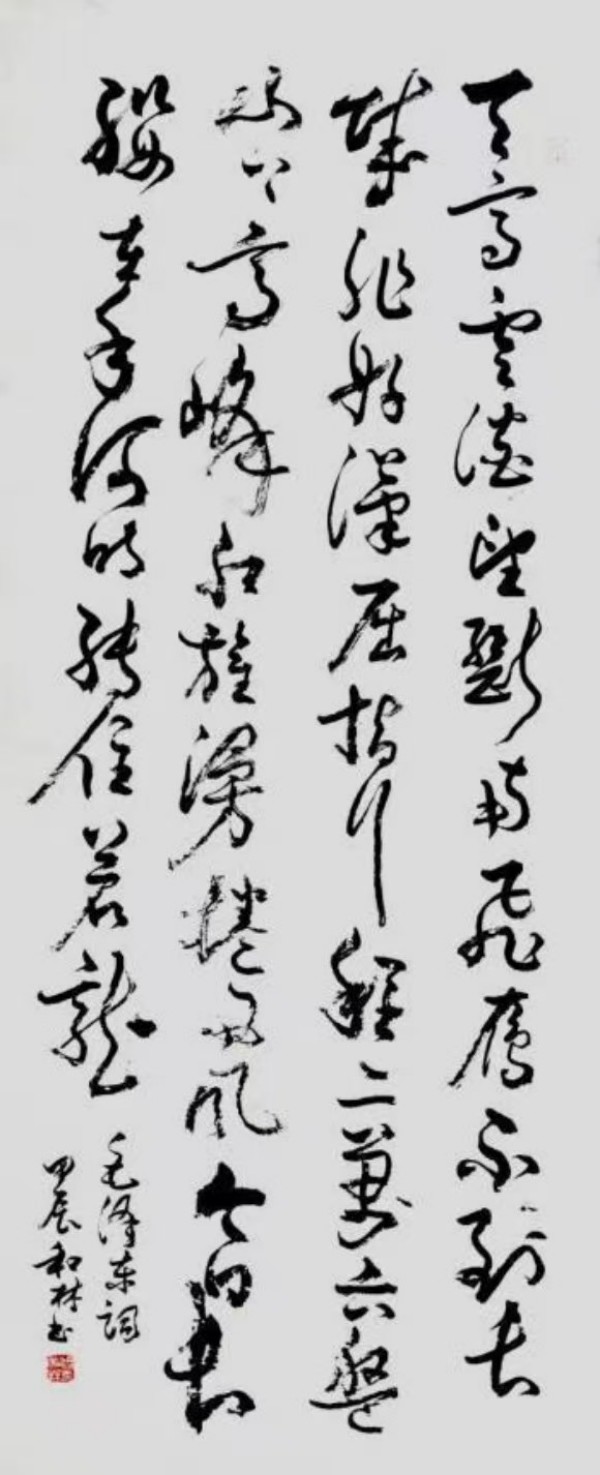 天高雲澹望斷南飛雁不到長
城非好漢屈指行程二萬六盤
山上高峰紅旗漫捲西風今日長
纓在手何時縛住蒼龍
毛澤東詞
甲辰和林书